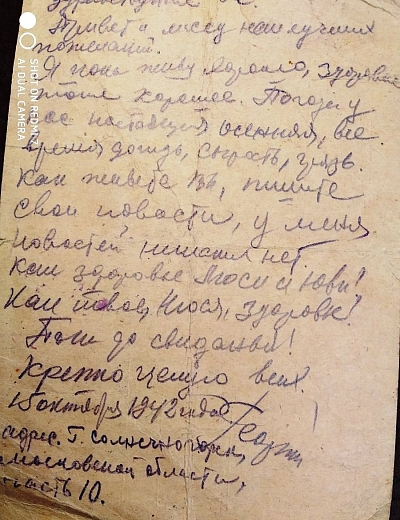 Привет и массу наилучших
пожеланий.
Я пока живу хорошо, здоровье
тоже хорошее. Погода у
нас настоящая осенняя, все
время дождь, сырость, грязь.
Как живете Вы, пишите
свои новости, у меня
новостей никаких нет
Как здоровье Люси и Юви?
Как твое, Нюся, здоровье?
Пока до свиданья!
Крепко целую всех
15 октября 1942 года
адрес. Г. Солнечногорск,
Московской области,
часть 10.
SHOT ON REDMI
AI DUAL CAMERA